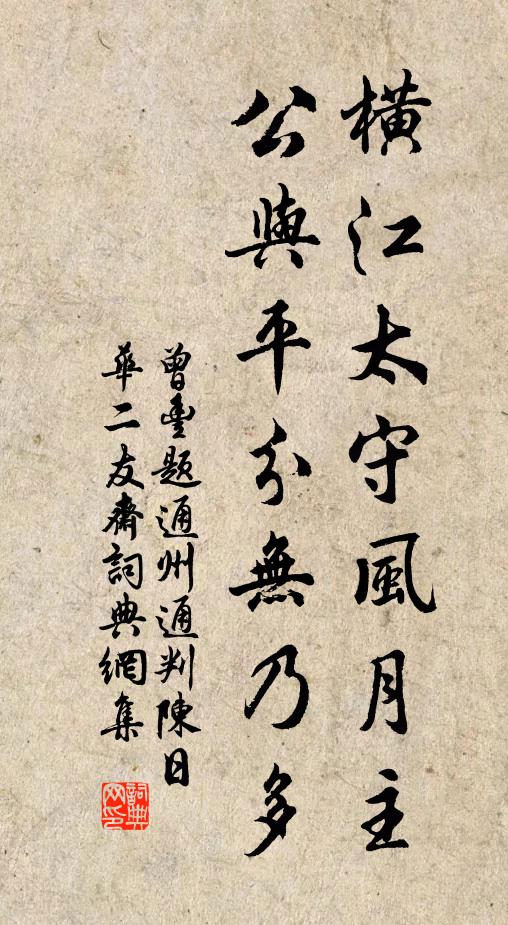 橫江太守風月主
公與平分無乃多
曾豐題通州通判陳日
華二友齋詞典網集
詞典
网印